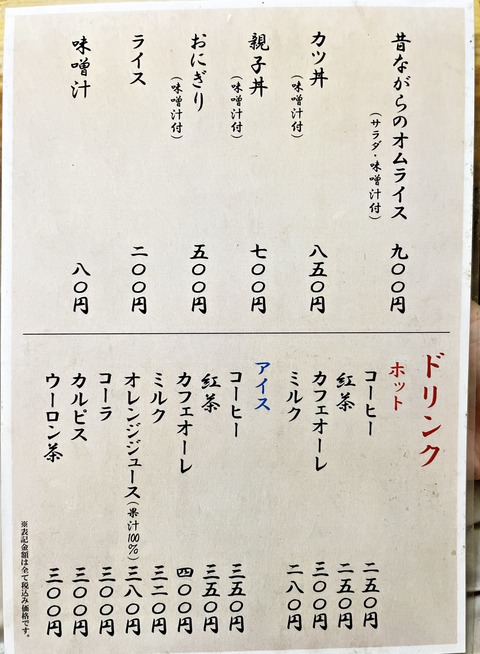 昔ながらのオムライス
(サラダ・味噌汁付)
九〇〇円
カツ丼
(味噌汁付)
八五〇円
親子丼
(味噌汁付)
七〇〇円
おにぎり
(味噌汁付)
五〇〇円
ライス
二〇〇円
味噌汁
八〇円
ドリンク
ホット
コーヒー 二五〇円
紅茶 二五〇円
カフェオーレ 三〇〇円
ミルク 二八〇円
アイス
コーヒー 三五〇円
紅茶 三五〇円
カフェオーレ 四〇〇円
ミルク 三二〇円
オレンジジュース(果汁100%) 三八〇円
コーラ 三〇〇円
カルピス 三〇〇円
ウーロン茶 三〇〇円
※表記金額は全て税込み価格です。